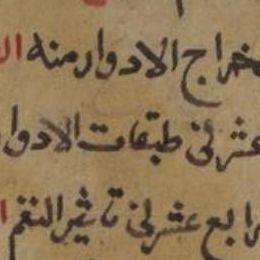 خراج الادوار منه ال
عشر فى طبقات الادوا
رابع عشر فى تاثير النغم ا